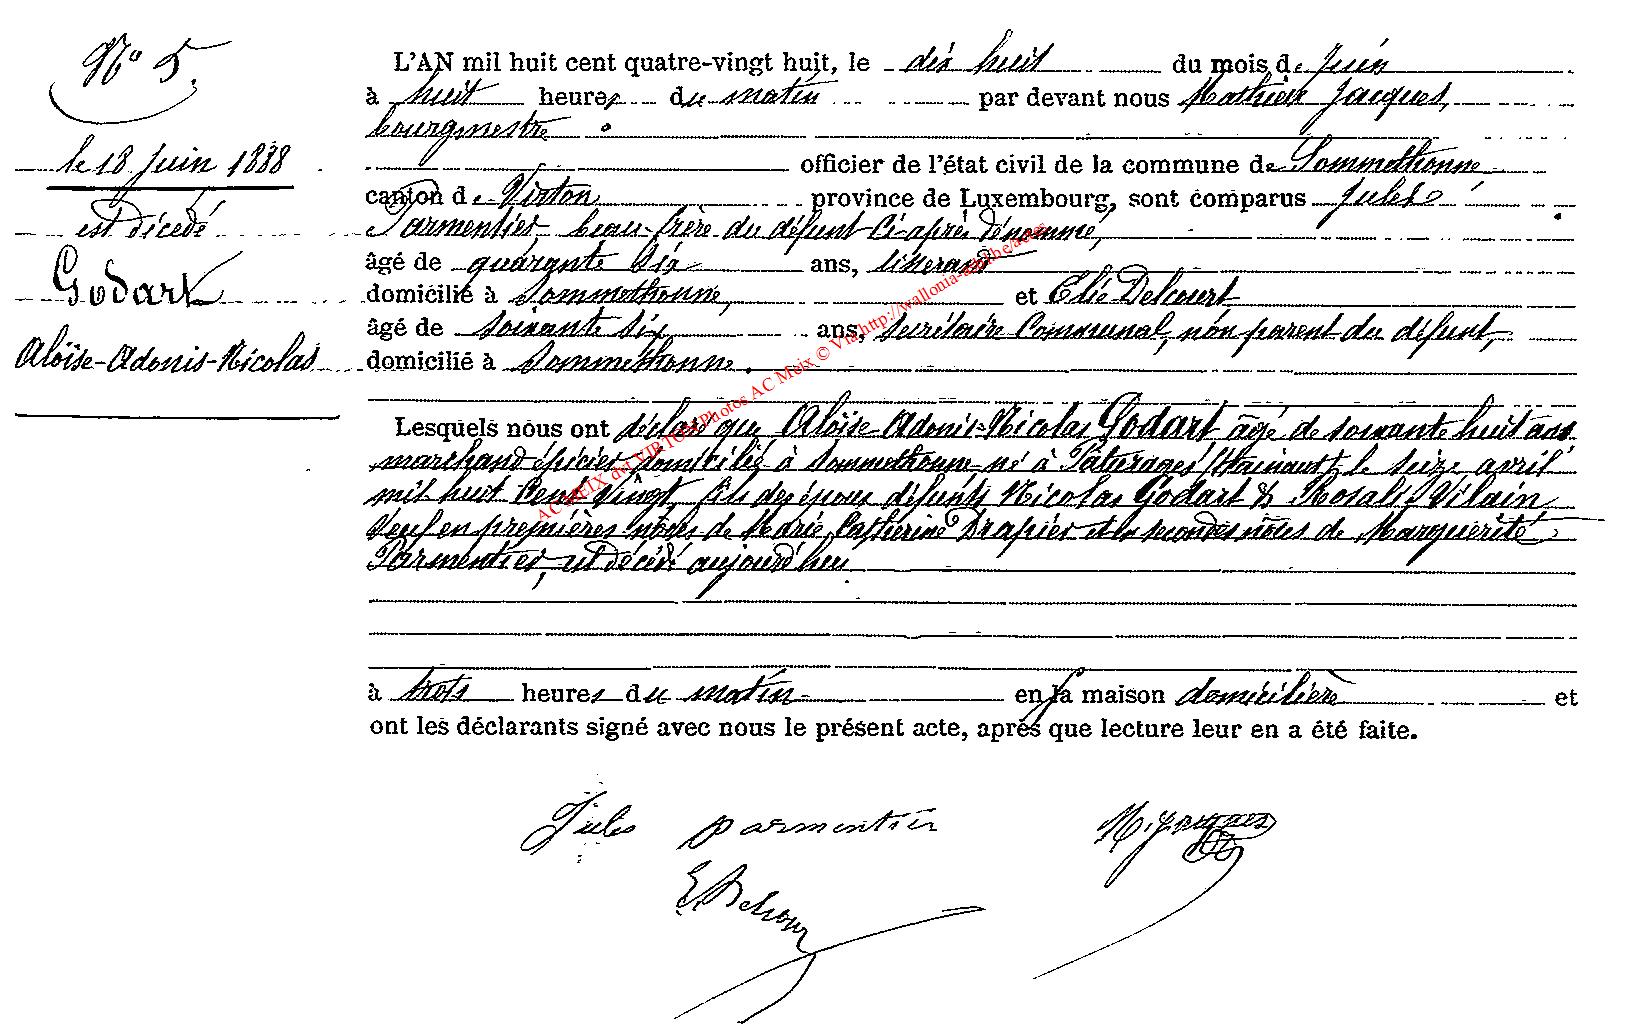 N° 5
le 18 Juin 1888
est décédé
Godart
Aloïse-Adonis-Nicolas
L'AN mil huit cent quatre-vingt huit, le dix huit du mois de Juin
à huit heures du matin par devant nous Mathieu Jacques,
bourgmestre
officier de l'état civil de la commune de Sommethonne
canton de Virton province de Luxembourg, sont comparus Jules
Parmentier, beau-frère du défunt ci-après dénommé,
âgé de quarante six ans, tisserand
domicilié à Sommethonne, et Elie Delcourt
âgé de soixante six ans, secrétaire communal, non parent du défunt,
domicilié à Sommethonne.
Lesquels nous ont déclaré que Aloïse-Adonis-Nicolas Godart, âgé de soixante huit ans
marchand épicier, domicilié à Sommethonne, né à Pâturages (Hainaut) le seize avril
mil huit cent vingt, fils des époux défunts Nicolas Godart & Rosalie Vilain
veuf en premières noces de Marie Catherine Drapier et en secondes noces de Marguerite
Parmentier, est décédé aujourd'hui
à trois heures du matin en sa maison domicilière et
ont les déclarants signé avec nous le présent acte, après que lecture leur en a été faite.
Jules parmentier M. Jacques
E. Delcour